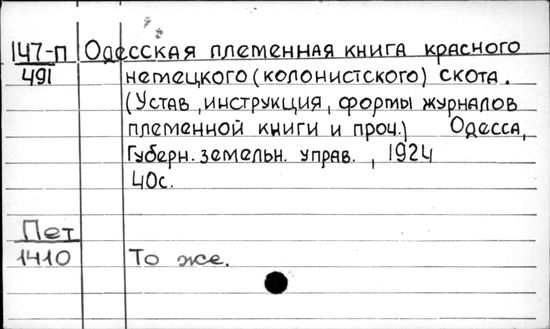 147-п Одесская племенная книга красного
491 немецкого (колонистского) скота.
(Устав, инструкция, формы журналов
племенной книги и проч.) Одесса,
Губерн. земельн. управ., 1924
40с.
Пет
1410 То же.